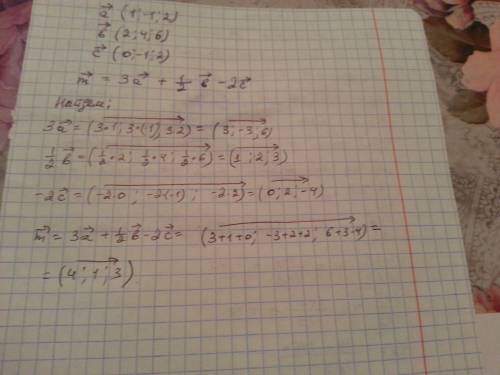 a⃗ (1; -1; 2)
b⃗ (2; 4; 6)
c⃗ (0; -1; 2)
m⃗ = 3a⃗ + 1/2 b⃗ - 2c⃗
Найдем:
3a⃗ = (3·1; 3·(-1); 3·2) = (3; -3; 6)
1/2 b⃗ = (1/2·2; 1/2·4; 1/2·6) = (1; 2; 3)
-2c⃗ = (-2·0; -2(-1); -2·2) = (0; 2; -4)
m⃗ = 3a⃗ + 1/2 b⃗ - 2c⃗ = (3+1+0; -3+2+2; 6+3-4) =
= (4; 1; 3)